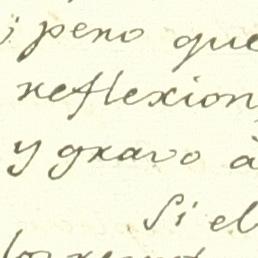 ; pero que
reflexion,
y gravo à
Si el